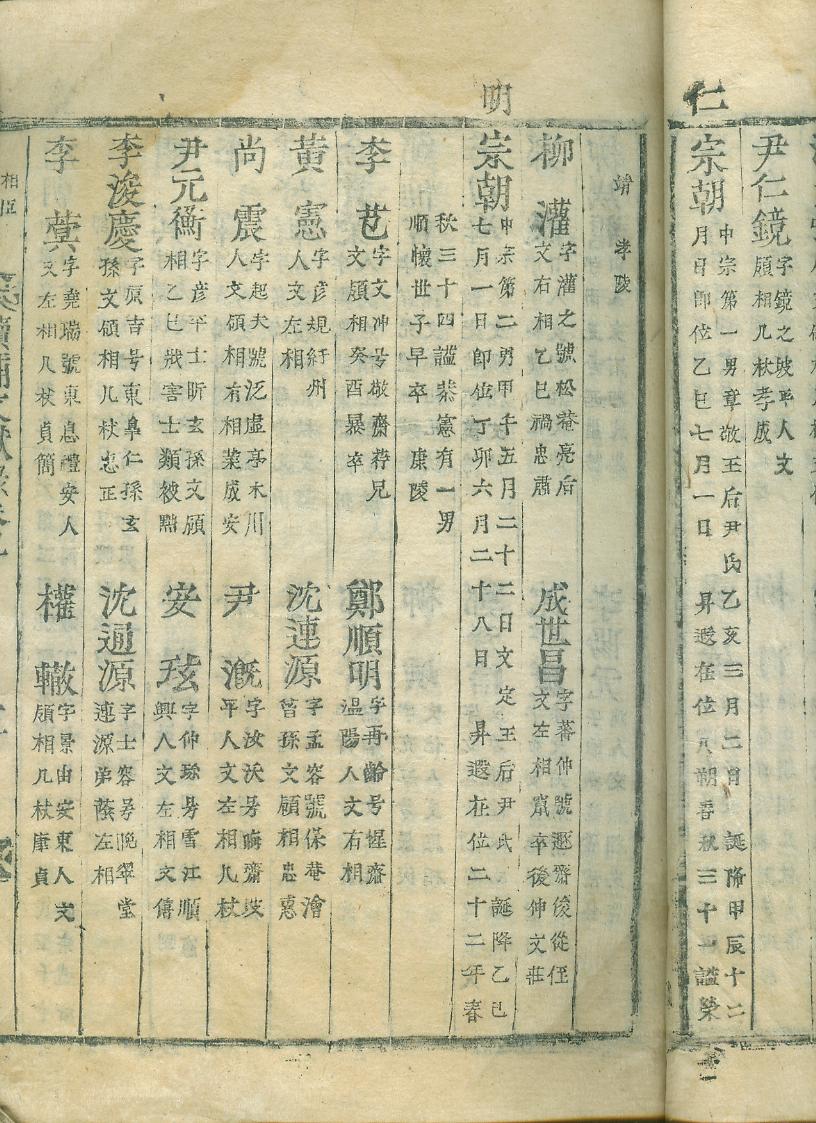 尹仁鏡 字鏡之坡平人文
領相几杖孝成
仁
宗朝 中宗第一男章敬王后尹氏乙亥二月二日誕降甲辰十二
月日即位乙巳七月一日昇遐在位八朔春秋三十一謚榮
靖 孝陵
柳灌 字灌之號松菴亮后
文右相乙巳禍忠肅
成世昌 字蕃仲號遯齋俊從侄
文左相竄卒後伸文莊
明
宗朝 中宗第二男甲午五月二十二日文定王后尹氏誕降乙巳
七月一日即位丁卯六月二十八日昇遐在位二十二年春
秋三十四謚恭憲有一男
順懷世子早卒 康陵
李芑 字文冲号敬齋荇兄
文領相癸酉暴卒
鄭順明 字再齡号惺齋
溫陽人文右相
黃憲 字彦規紆州
人文左相
沈連源 字孟容號保菴澮
曾孫文領相忠惠
尚震 字起夫號泛虛亭木川
人文領相有相業成安
尹漑 字汝沃号晦齋坡
平人文左相几杖
尹元衡 字彦平士昕玄孫文領
相乙巳戕害士類被黜
安玹 字仲珍号雪江順
興人文左相文僖
李浚慶 字原吉号東皐仁孫玄
孫文領相几杖忠正
沈通源 字士容号晩翠堂
連源弟蔭左相
李蓂 字堯瑞號東息禮安人
文左相几杖貞簡
權轍 字景由安東人文
領相几杖康貞
相臣